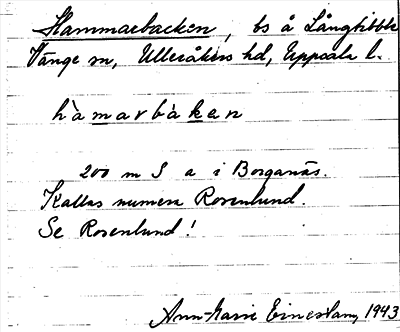 Hammarbacken, bs å Långtibble
Vänge sn, Ulleråkers hd, Uppsala l.
hàmarbàkan
200 m S a i Borganäs.
Kallas numera Rosenlund.
Se Rosenlund!
Ann-Marie 1943